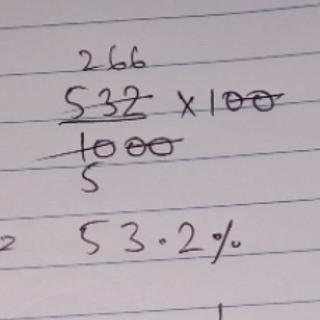 266
532 ×100
1000
5
= 53.2%